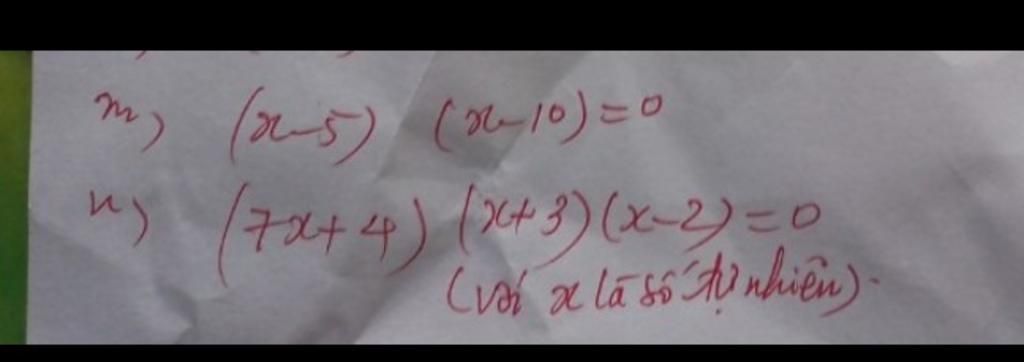 m) (x-5) (x-10)=0
n) (7x+4) (x+3)(x-2)=0
(với x là số tự nhiên).